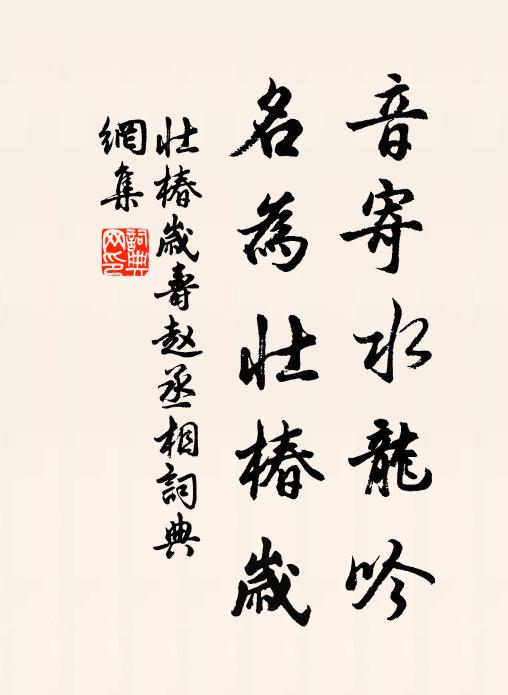 音寄水龍吟
名為壯椿歲
壯椿歲壽赵丞相詞典
網集
詞典
网印